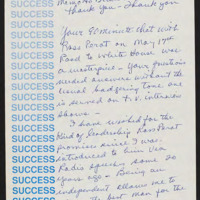 SUCCESS
SUCCESS Thank you - Thank you
SUCCESS
SUCCESS Your 90 minute chat with
SUCCESS Ross Perot on May 17th
SUCCESS Road to White House was
SUCCESS a masterpiece - your questions
SUCCESS needed answers without the
SUCCESS usual badgering tone one
SUCCESS is served on T.V. interview
SUCCESS shows -
SUCCESS I have worked for the
SUCCESS kind of leadership Ross Perot
SUCCESS promises since I was
SUCCESS introduced to him via
SUCCESS Radio speeches some 20
SUCCESS years ago - Being an
SUCCESS independent allows me to
SUCCESS the best man for the